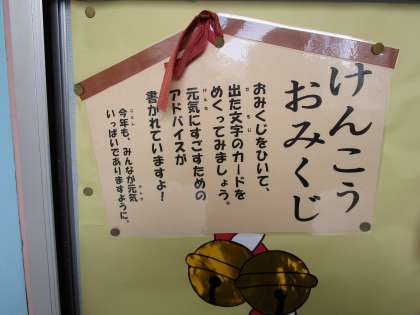 けんこう
おみくじ
おみくじをひいて、
出た文字のカードを
めくってみましょう。
元気にすごすための
アドバイスが
書かれていますよ！
今年も、みんなが元気
いっぱいでありますように。